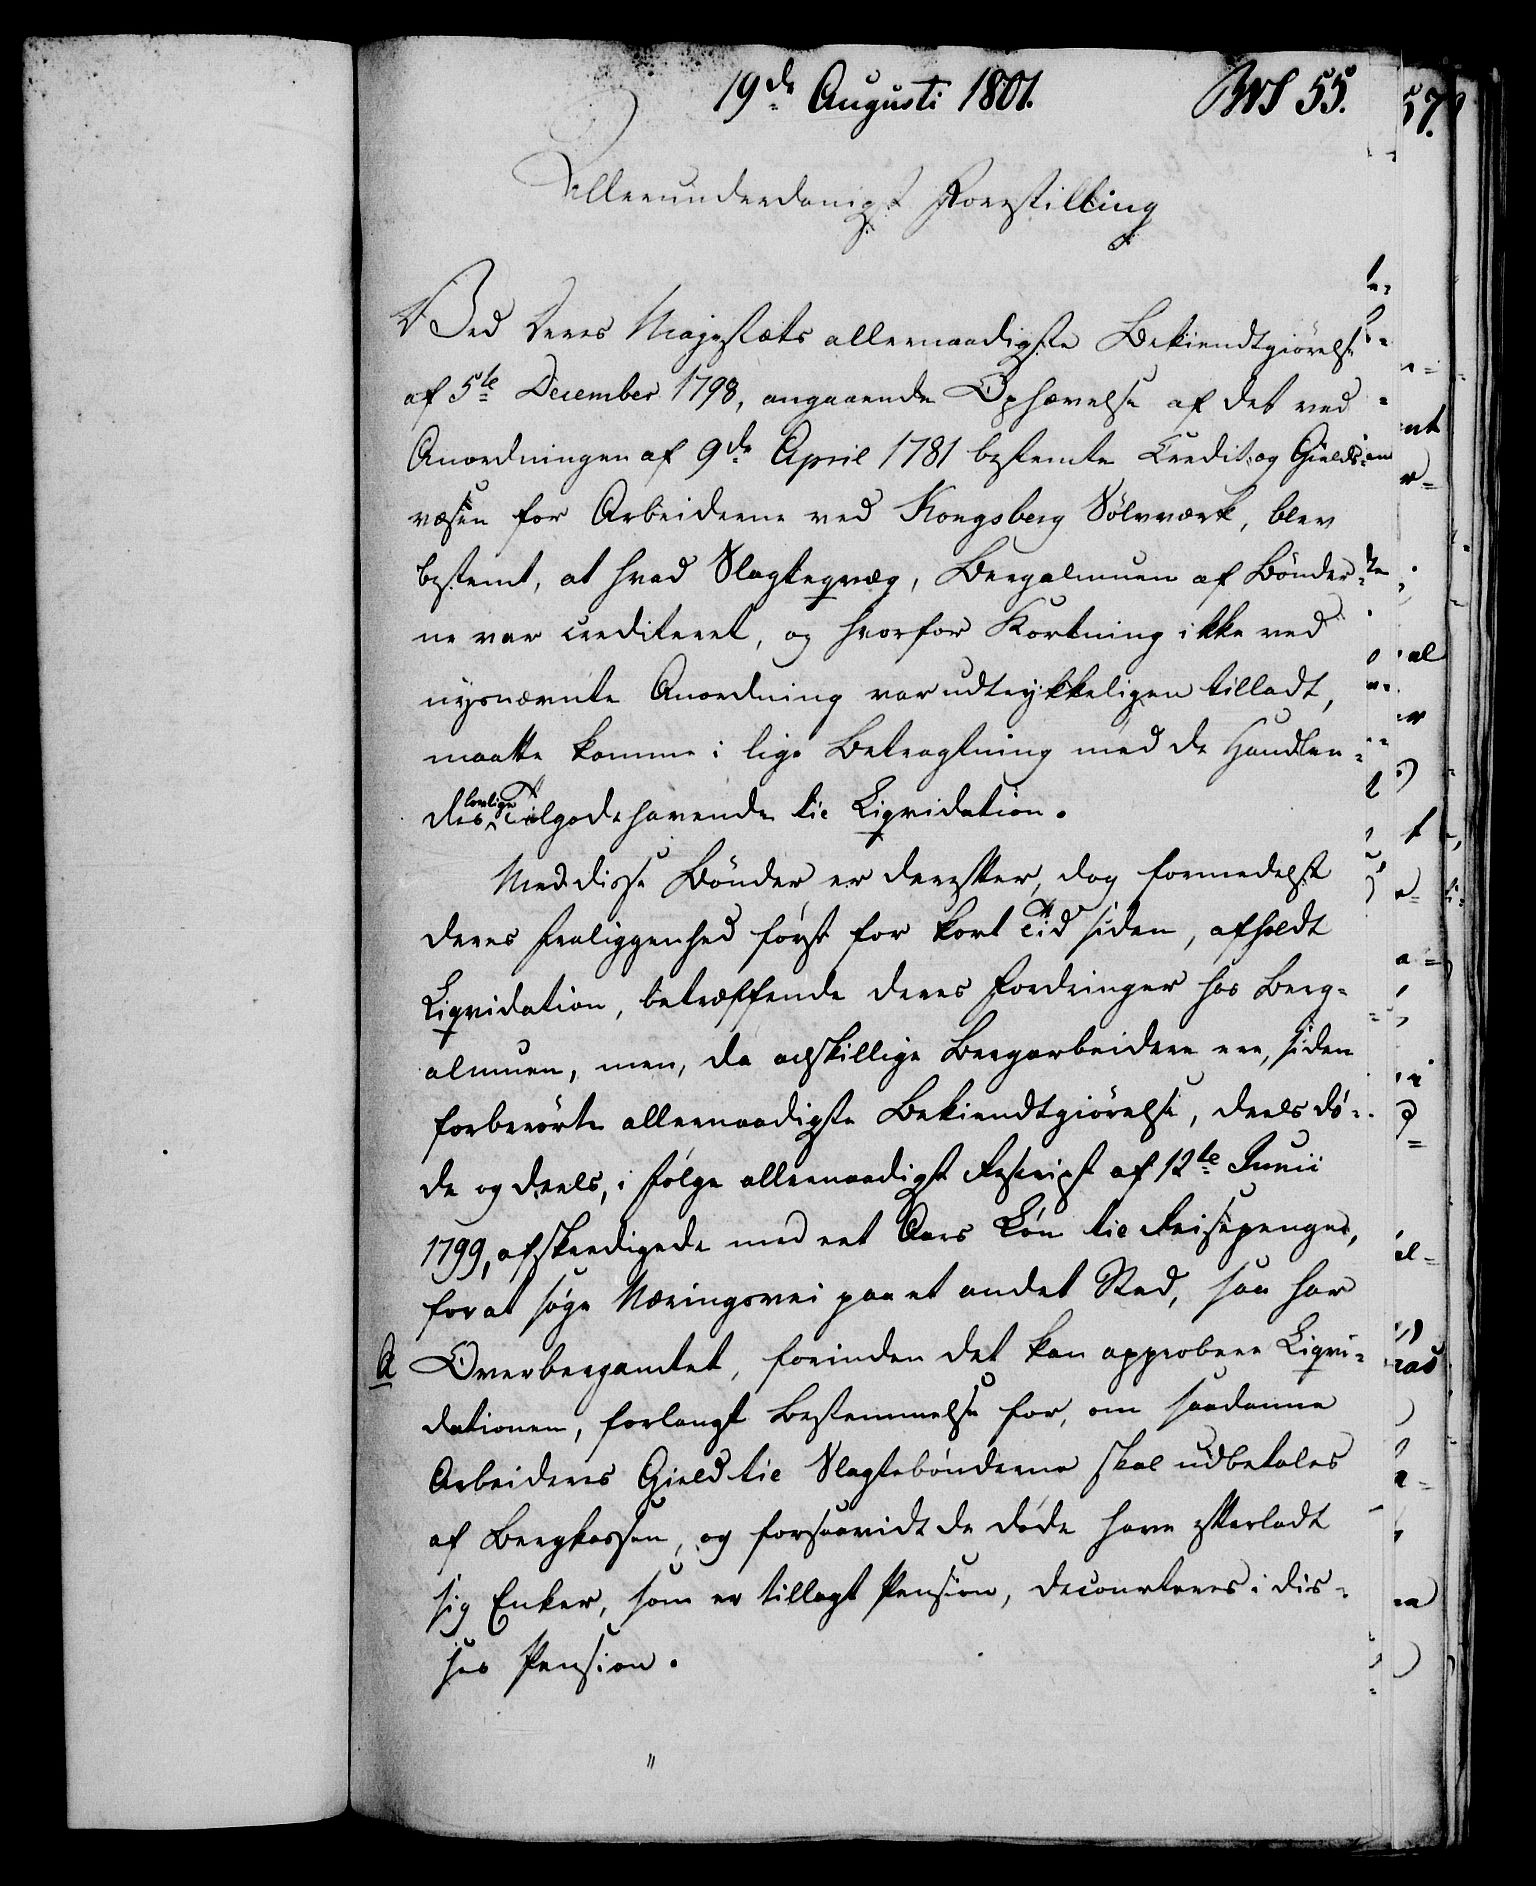 19de Augusti 1801.
No 55.
Allerunderdanigst Forestilling
Ved Deres Majestæts allernaadigste Bekiendtgiørelse
af 5te December 1798, angaaende Ophævelse af det ved
Anordningen af 9de April 1781 bestemte Credit- og Gields-
væsen for Arbeiderne ved Kongsberg Sølvværk, blev
bestemt, at hvad Slagteqvæg, Bergalmuen af Bønder-
ne var crediteret, og hvorfor Kortning ikke ved
nysnævnte Anordning var udtrykkeligen tilladt,
maatte komme i lige Betragtning med de Handlen-
des lovlige Tilgodehavende til Liqvidation.
Med disse Bønder er derefter, dog formedelst
deres Fraliggenhed først for kort Tid siden, afholdt
Liqvidation, betræffende deres Fordringer hos Berg-
almuen, men, da adskillige Bergarbeidere ere, siden
forberørte allernaadigste Bekiendtgiørelse, deels dø-
de og deels, i følge allernaadigst Rescript af 12te Junii
1799, afskeedigede med eet Aars Løn til Reisepenge,
for at søge Næringsvei paa et andet Sted, saa har
A Overbergamtet, forinden det kan approbere Liqvi-
dationen, forlangt Bestemmelse for, om saadanne
Arbeideres Gield til Slagtebønderne skal udbetales
af Bergkassen, og forsaavidt de døde have efterladt
sig Enker, som er tillagt Pension, decourteres i dis-
ses Pension.